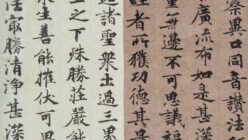 異口同音讚法
廣流布如是甚深
量無邊不可思議福
經者所獲功德其是
諸聖眾出過三界
之下殊勝莊嚴
生善能摧伏可畏
最勝清淨甚深